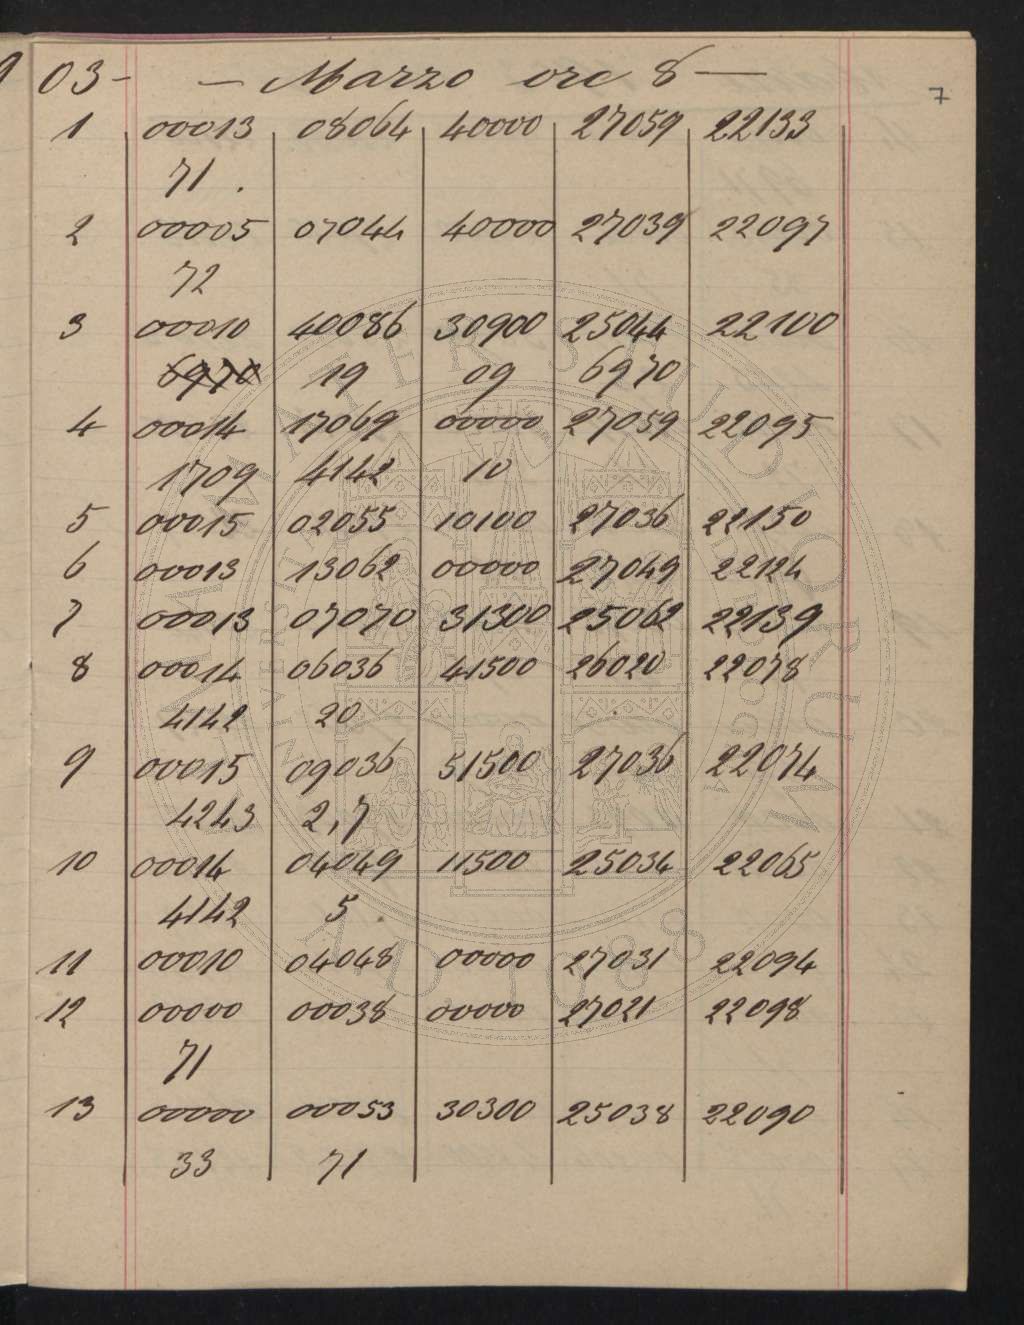 03- — Marzo ore 8 —
7
1 00013 08064 40000 27059 22133
71 .
2 00005 07044 40000 27039 22097
72
3 00010 40086 30900 25044 22100
6970 19 09 6970
4 00014 17069 00000 27059 22095
1709 4142 10
5 00015 02055 10100 27036 22150
6 00013 13062 00000 27049 22124
7 00013 07070 31300 25062 22139
8 00014 06036 41500 26020 22078
4142 20
9 00015 09036 51500 27036 22074
4243 2,7
10 00014 04049 11500 25034 22065
4142 5 .
11 00010 04048 00000 27031 22094
12 00000 00038 00000 27021 22098
71
13 00000 00053 30300 25038 22090
33 71
ALMA MATER STUDIORUM
UNIVERSITÀ DI BOLOGNA
A.D. 1088